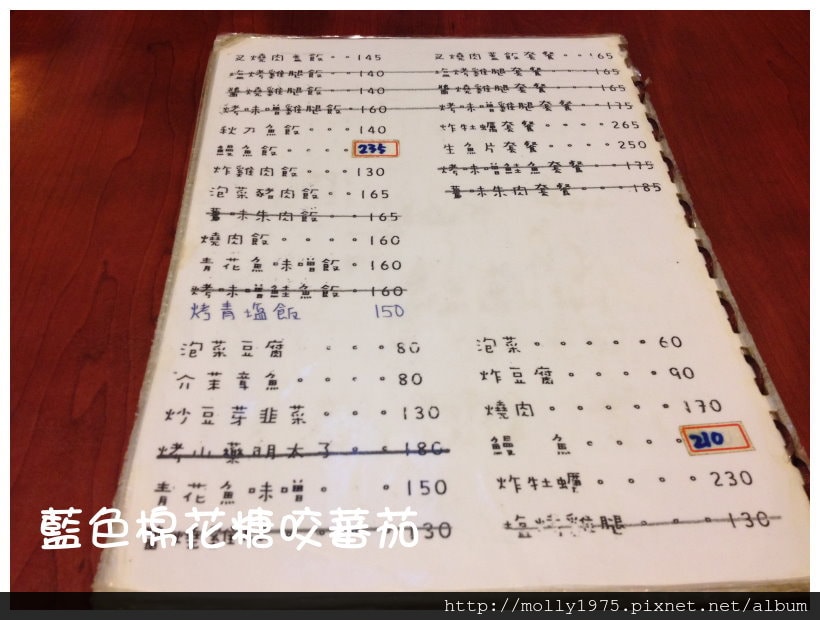 叉燒肉蓋飯・・145
塩烤雞腿飯・・140
醬燒雞腿飯・・140
烤味噌雞腿飯・160
秋刀魚飯・・・140
鰻魚飯・・・・235
炸雞肉飯・・・130
泡菜豬肉飯・・165
薑味朱肉飯・・165
燒肉飯・・・・160
青花魚味噌飯・160
烤味噌鮭魚飯・160
烤青塩飯 150
叉燒肉蓋飯套餐・・165
塩烤雞腿套餐・・165
醬燒雞腿套餐・・165
烤味噌雞腿套餐・175
炸牡蠣套餐・・・265
生魚片套餐・・・250
烤味噌鮭魚套餐・・175
薑味朱肉套餐・・185
泡菜豆腐・・・80
介茉章魚・・・・80
炒豆芽韭菜・・・130
烤小藥明太子・・180
青花魚味噌・・・150
130
泡菜・・・・・60
炸豆腐・・・・90
燒肉・・・・・170
鰻 魚・・・・210
炸牡蠣・・・・230
塩烤雞腿・・・・130
藍色棉花糖咬蕃茄
http://molly1975.pixnet.net/album